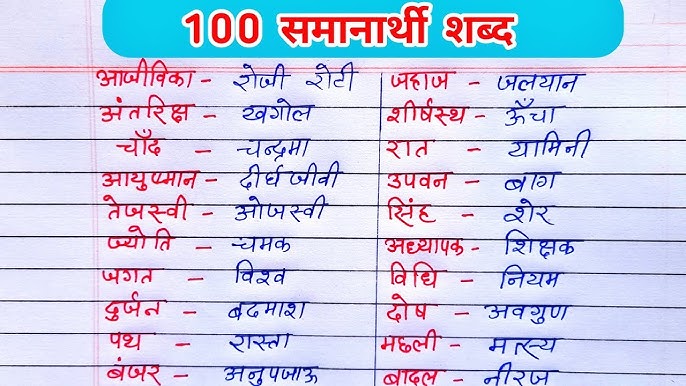 100 समानार्थी शब्द
आजीविका - रोजी रोटी
अंतरिक्ष - खगोल
चाँद - चन्द्रमा
आयुष्मान - दीर्घजीवी
तेजस्वी - ओजस्वी
ज्योति - चमक
जगत - विश्व
दुर्जन - बदमाश
पथ - रास्ता
बंजर - अनुपजाऊ
जहाज - जलयान
शीर्षस्थ - ऊँचा
रात - यामिनी
उपवन - बाग
सिंह - शेर
अध्यापक - शिक्षक
विधि - नियम
दोष - अवगुण
मछली - मत्स्य
बादल - नीरज